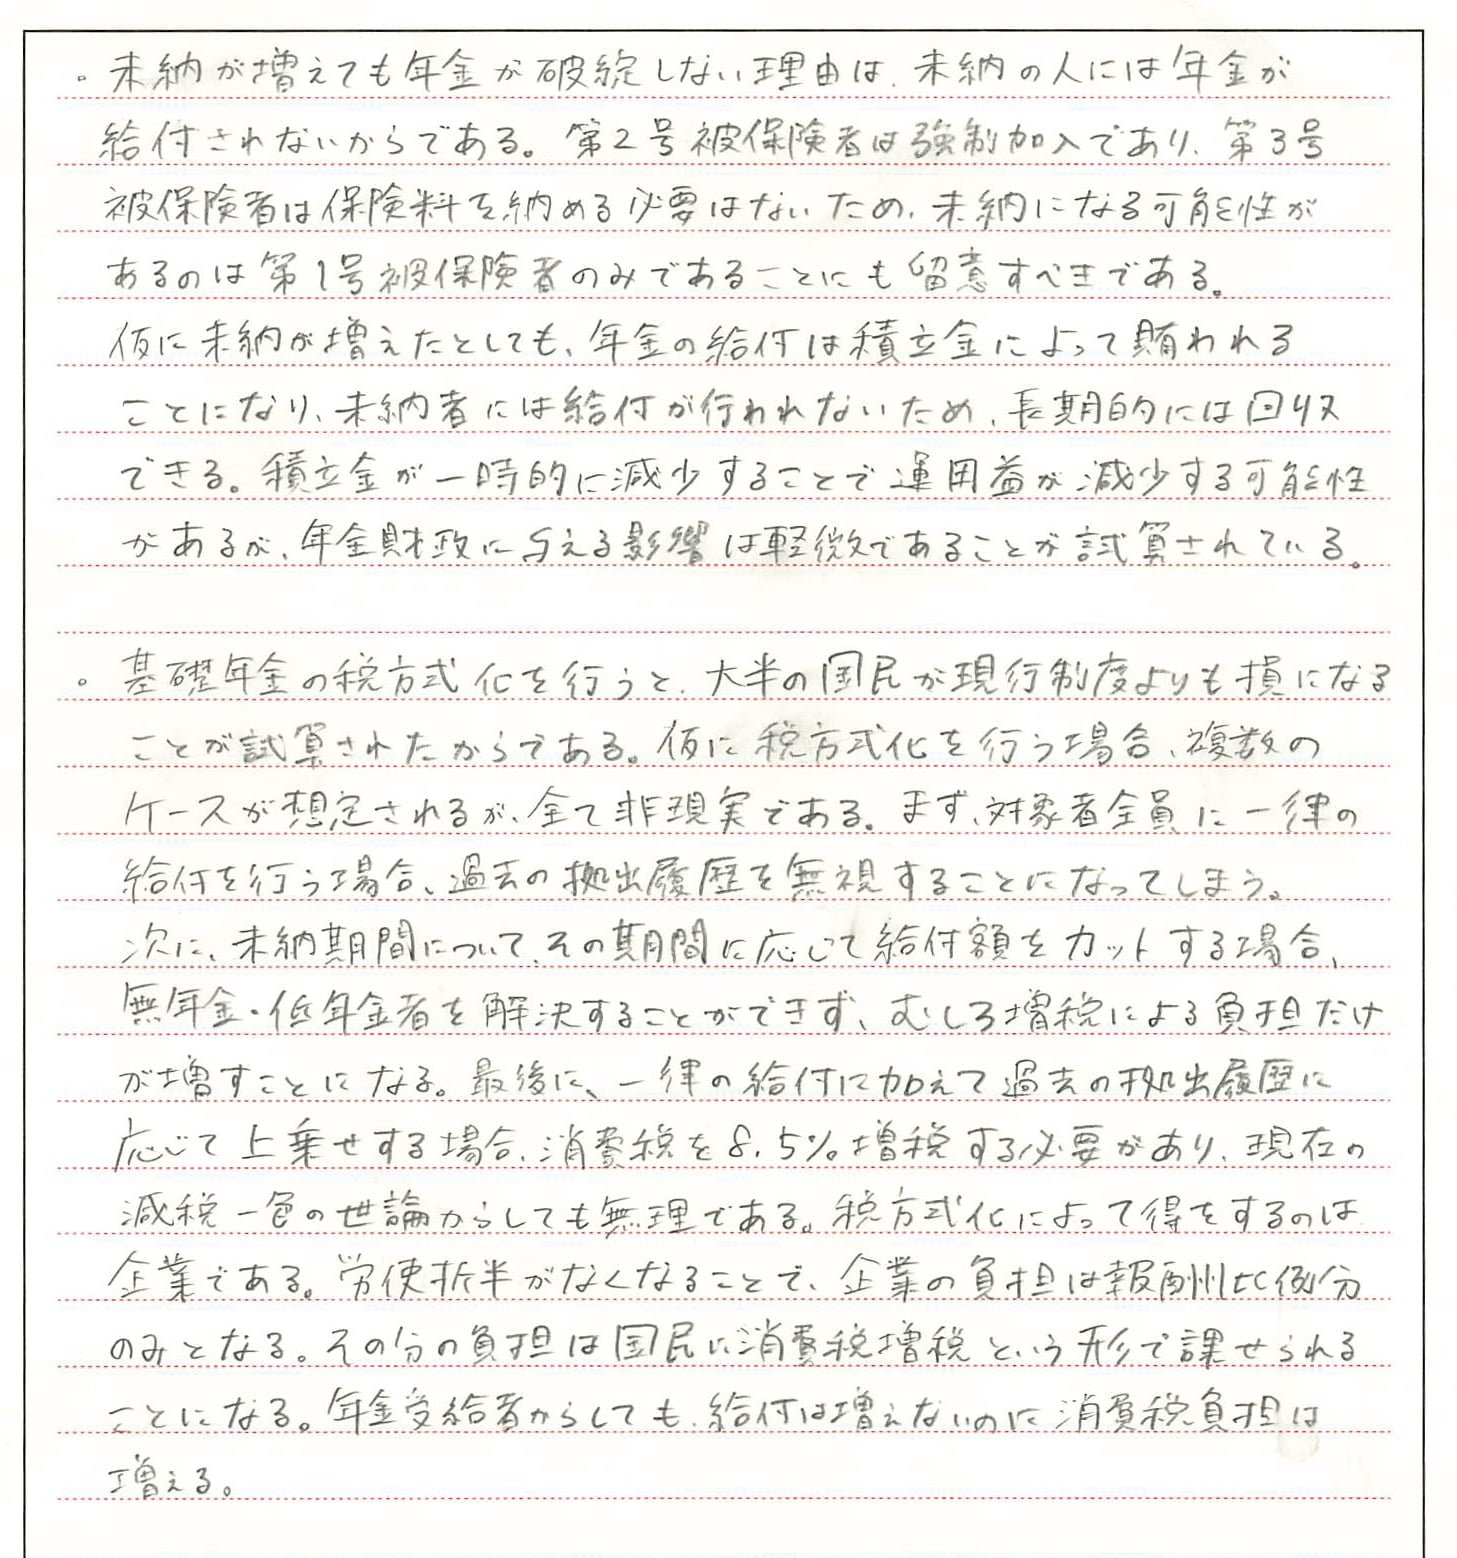 。未納が増えても年金が破綻しない理由は、未納の人には年金が
給付されないからである。第2号被保険者は強制加入であり、第3号
被保険者は保険料を納める必要はないため、未納になる可能性が
あるのは第1号被保険者のみであることにも留意すべきである。
仮に未納が増えたとしても、年金の給付は積立金によって賄われる
ことになり、未納者には給付が行われないため、長期的には回収
できる。積立金が一時的に減少することで運用益が減少する可能性
があるが、年金財政に与える影響は軽微であることが試算されている。
。基礎年金の税方式化を行うと、大半の国民が現行制度よりも損になる
ことが試算されたからである。仮に税方式化を行う場合、複数の
ケースが想定されるが、全て非現実である。まず、対象者全員に一律の
給付を行う場合、過去の拠出履歴を無視することになってしまう。
次に、未納期間について、その期間に応じて給付額をカットする場合、
無年金・低年金者を解決することができず、むしろ増税による負担だけ
が増すことになる。最後に、一律の給付に加えて過去の拠出履歴に
応じて上乗せする場合、消費税を8.5%増税する必要があり、現在の
減税一色の世論からしても無理である。税方式化によって得をするのは
企業である。労使折半がなくなることで、企業の負担は報酬比例分
のみとなる。その分の負担は国民に消費税増税という形で課せられる
ことになる。年金受給者からしても、給付は増えないのに消費税負担は
増える。